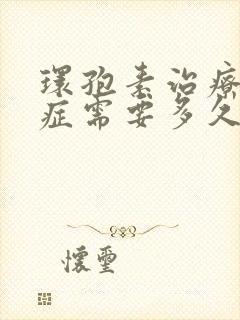 環孢素治療
症需要多久
懷璽